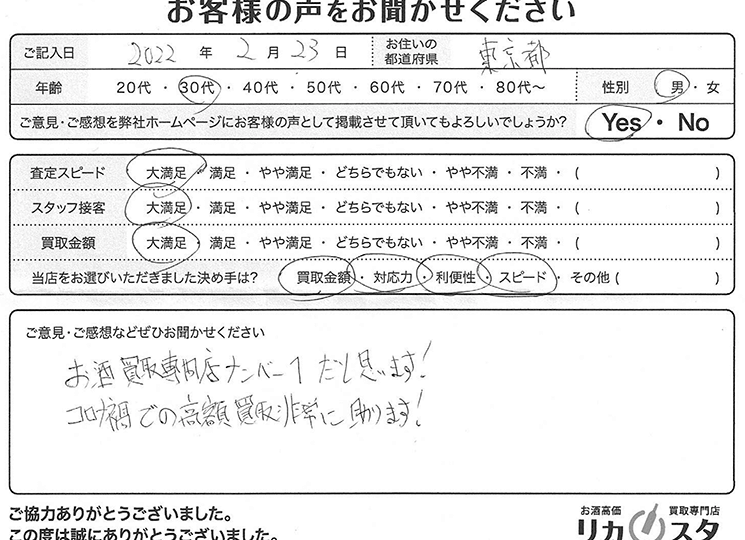 お客様の声をお聞かせください
ご記入日 2022 年 2 月 23 日 お住いの都道府県 東京都
年齢 20代 ・ 30代 ・ 40代 ・ 50代 ・ 60代 ・ 70代 ・ 80代〜 性別 男 ・ 女
ご意見・ご感想を弊社ホームページにお客様の声として掲載させて頂いてもよろしいでしょうか? Yes ・ No
査定スピード 大満足 ・ 満足 ・ やや満足 ・ どちらでもない ・ やや不満 ・ 不満 ・ ( )
スタッフ接客 大満足 ・ 満足 ・ やや満足 ・ どちらでもない ・ やや不満 ・ 不満 ・ ( )
買取金額 大満足 ・ 満足 ・ やや満足 ・ どちらでもない ・ やや不満 ・ 不満 ・ ( )
当店をお選びいただきました決め手は? 買取金額 ・ 対応力 ・ 利便性 ・ スピード ・ その他 ( )
ご意見・ご感想などぜひお聞かせください
お酒買取専門店ナンバー1だと思います!
コロナ禍での高額買取非常に助ります!
ご協力ありがとうございました。
この度は誠にありがとうございました。
お酒高価 買取専門店
リカスタ